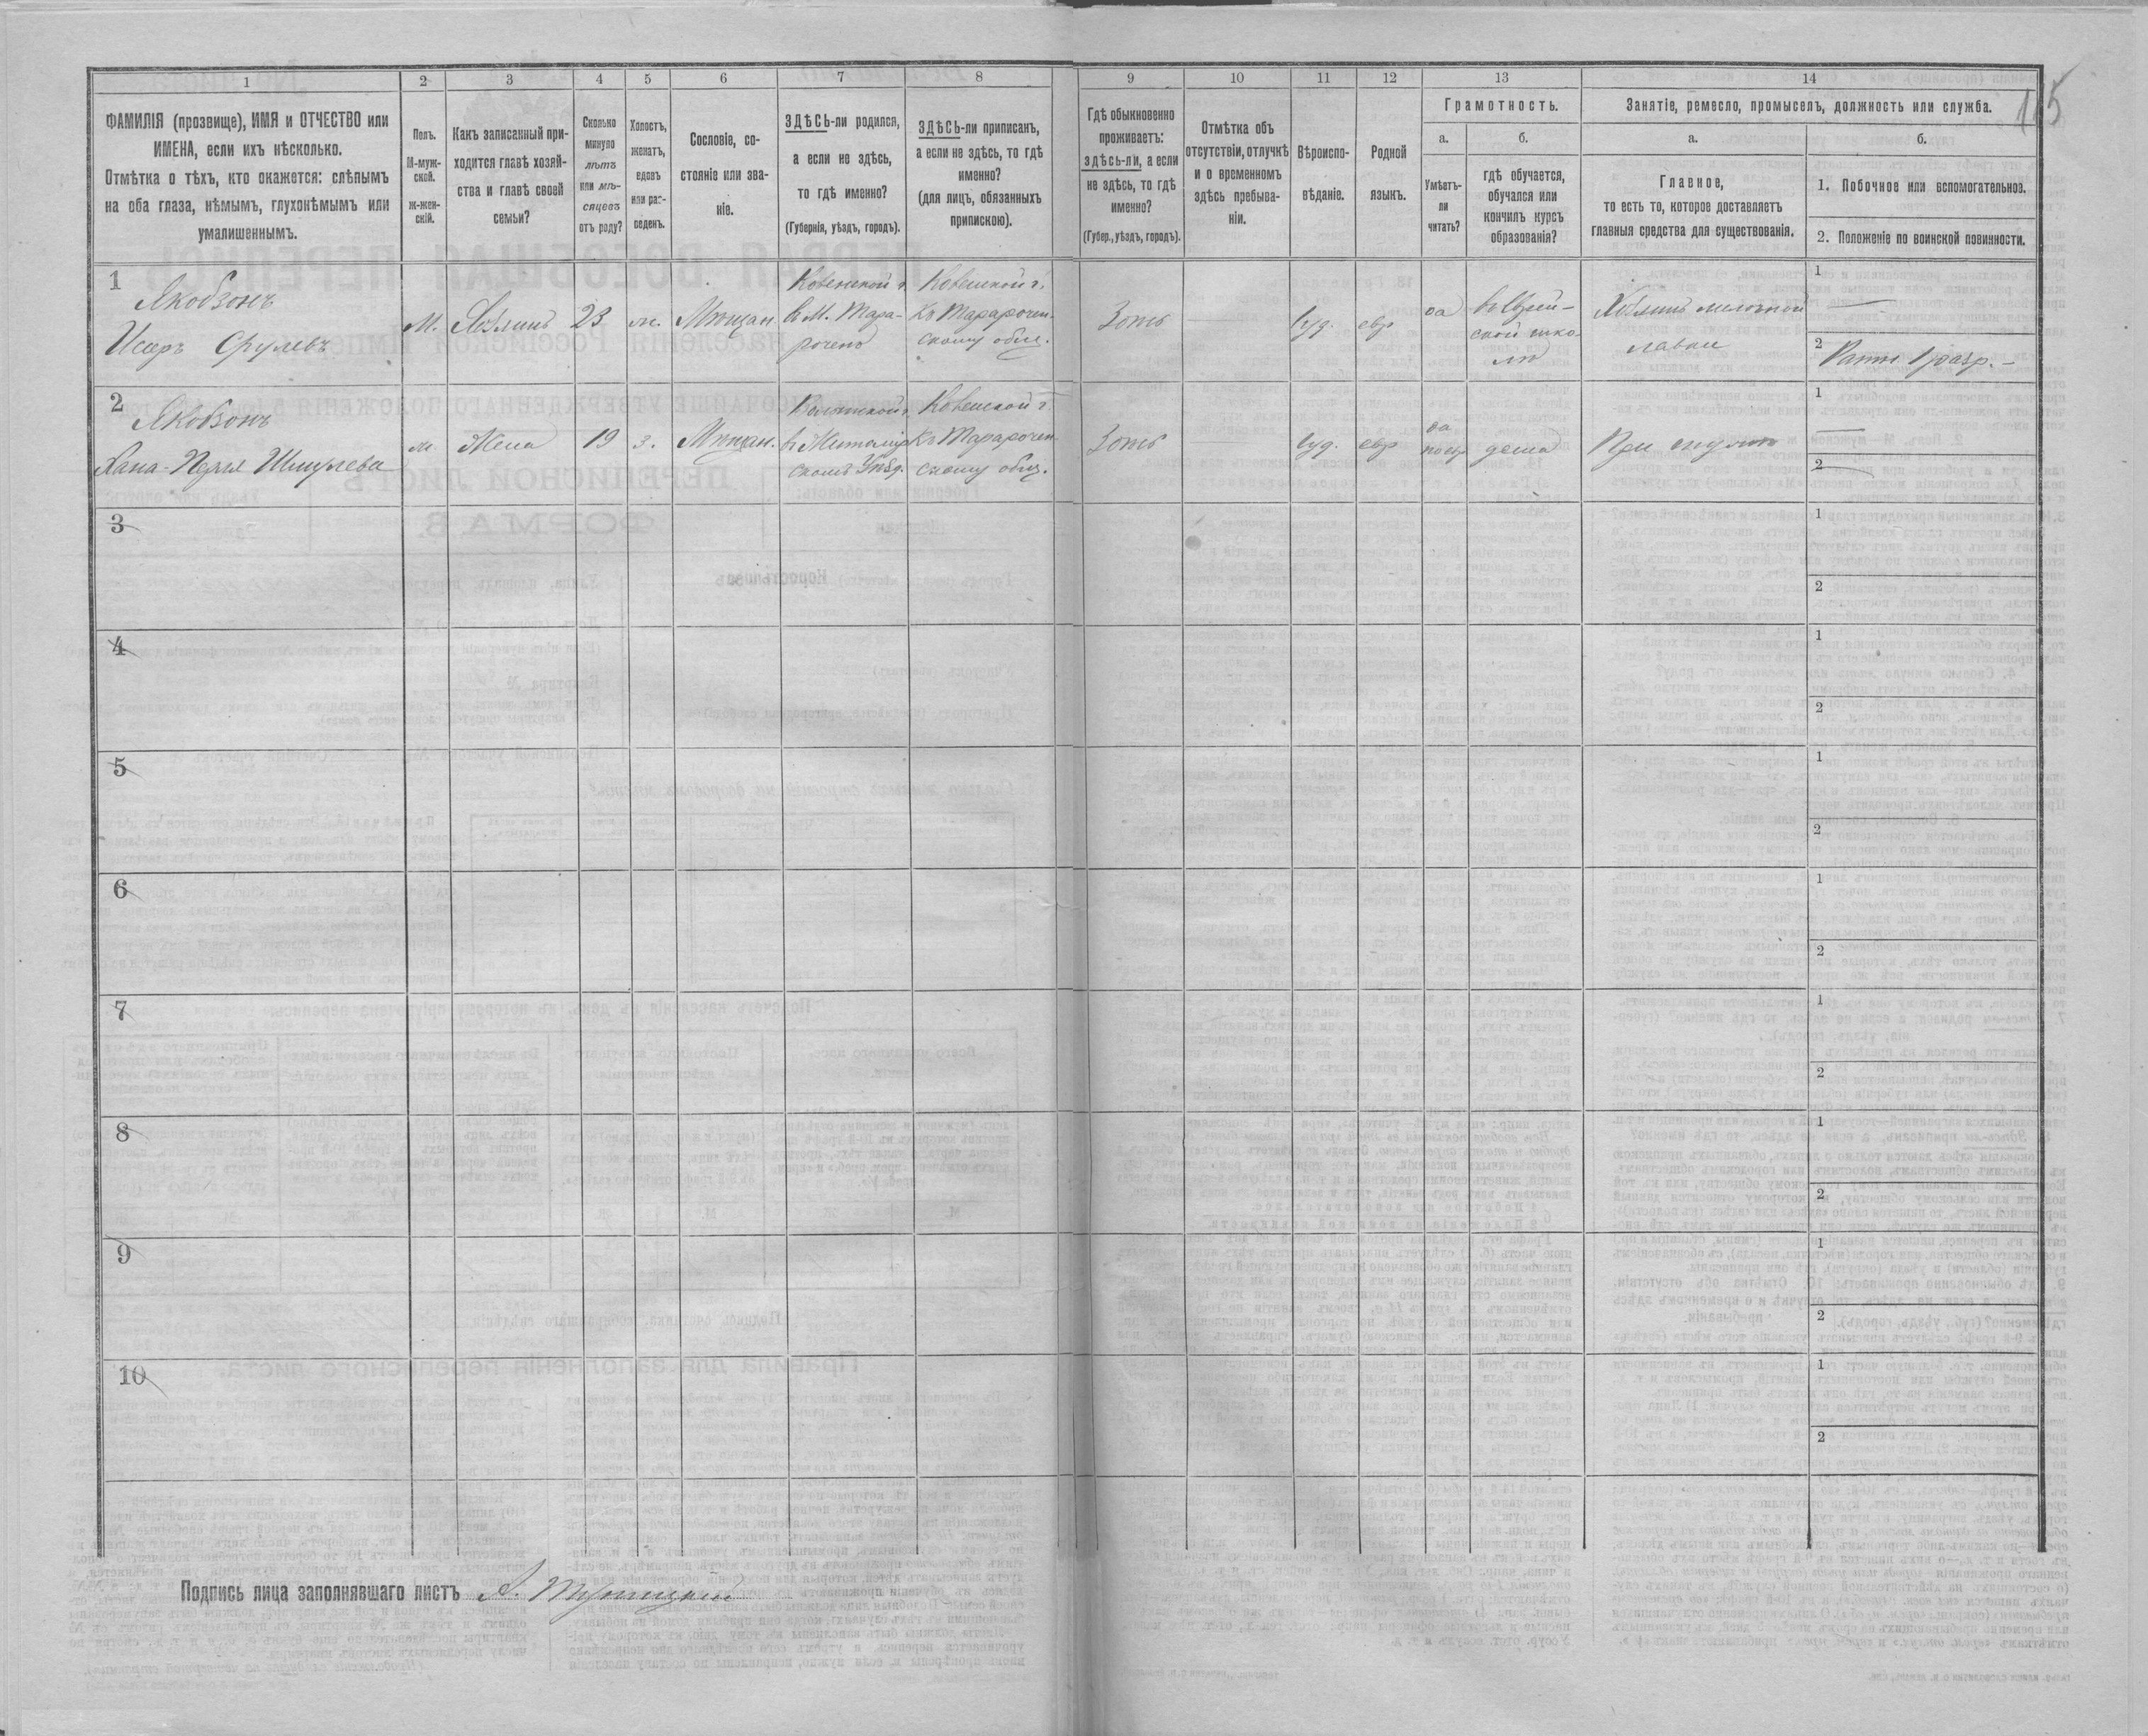 1 2 3 4 5 6 7 8 9 10 11 12 13 14
115
ФАМИЛІЯ (прозвище), ИМЯ и ОТЧЕСТВО или
ИМЕНА, если ихъ нѣсколько.
Отмѣтка о тѣхъ, кто окажется: слѣпымъ
на оба глаза, нѣмымъ, глухонѣмымъ или
умалишеннымъ.
Полъ.
М-муж-
ской.
ж-жен-
скій.
Какъ записанный при-
ходится главѣ хозяй-
ства и главѣ своей
семьи?
Сколько
минуло
лѣтъ
или мѣ-
сяцевъ
отъ роду?
Холостъ,
женатъ,
вдовъ
или раз-
веденъ.
Сословіе, со-
стояніе или зва-
ніе.
ЗДѢСЬ-ли родился,
а если не здѣсь,
то гдѣ именно?
(Губернія, уѣздъ, городъ).
ЗДѢСЬ-ли приписанъ,
а если не здѣсь, то гдѣ
именно?
(для лицъ, обязанныхъ
припискою).
Гдѣ обыкновенно
проживаетъ:
здѣсь-ли, а если
не здѣсь, то гдѣ
именно?
(Губер., уѣздъ, городъ).
Отмѣтка объ
отсутствіи, отлучкѣ
и о временномъ
здѣсь пребыва-
ніи.
Вѣроиспо-
вѣданіе.
Родной
языкъ.
Грамотность.
а.
Умѣетъ-
ли
читать?
б.
гдѣ обучается,
обучался или
кончилъ курсъ
образованія?
Занятіе, ремесло, промыселъ, должность или служба.
а.
Главное,
то есть то, которое доставляетъ
главныя средства для существованія.
б.
1. Побочное или вспомогательное.
2. Положеніе по воинской повинности.
1
Якобзонъ
Исеръ Срулевъ
м.
Хозяинъ
23
ж.
Мѣщан.
Ковенской г.
в м. Тара-
Ковенской г.
скому общ.
Здѣсь
Іуд.
евр
да
в Еврей-
ской шко-
лѣ
Хозяинъ мелочной
лавки
1 —
2 Ратн. 1 разр. —
2
Якобзонъ
Хана-Перля Шмулева
Жена
19
з.
Мѣщан.
Волынской г.
в Житомір
скомъ Уѣзд.
Ковенской г.
скому общ.
Здѣсь
Іуд.
евр
да
по евр
дома
При мужѣ
1
2
3
1
2
4
1
2
5
1
2
6
1
2
7
1
2
8
1
2
9
1
2
10
1
2
Подпись лица заполнявшаго листъ А.